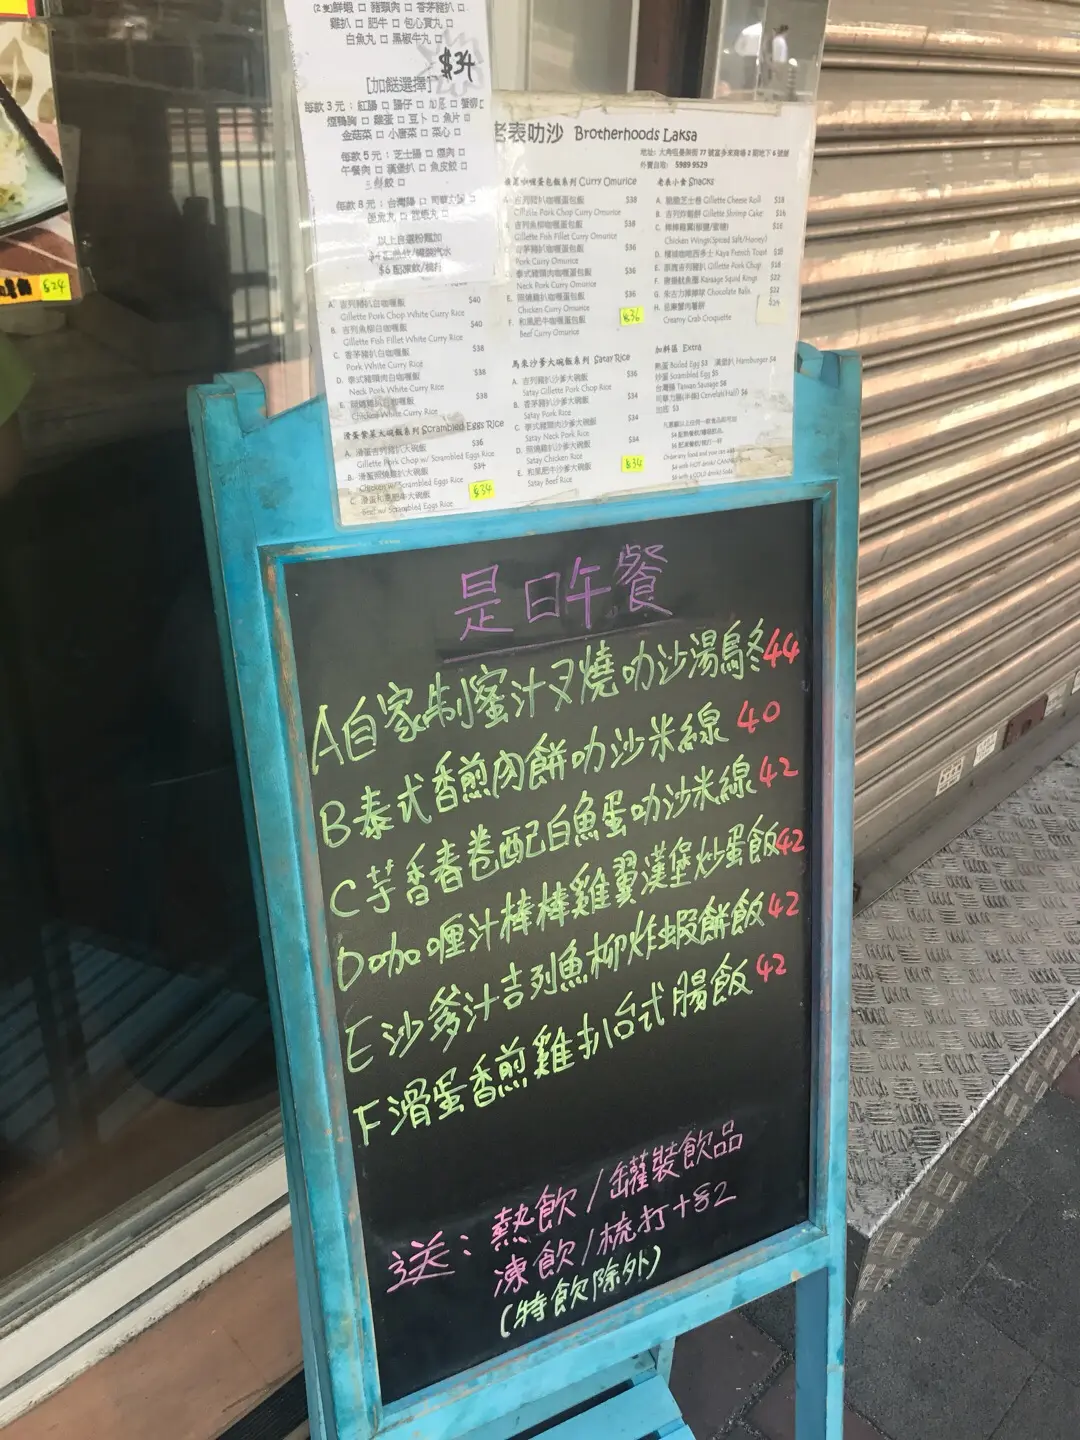 (2隻)鮮蝦 □ 豬頸肉 □ 香茅豬扒 □
雞扒 □ 肥牛 □ 包心貢丸 □
白魚丸 □ 黑椒牛丸 □
$34
[加餸選擇]
每款3元：紅腸 □ 腸仔 □ 加底 □ 蟹柳
煙鴨胸 □ 雞蛋 □ 豆卜 □ 魚片 □
金菇菜 □ 小唐菜 □ 菜心 □
每款5元：芝士腸 □ 煙肉 □
午餐肉 □ 漢堡扒 □ 魚皮餃 □
餃 □
每款8元：台灣腸 □
以上自選粉麵加
$6 配凍飲/梳打
$24
老表叻沙 Brotherhoods Laksa
外賣自取： 5989 9529
A. 吉列豬扒白咖喱飯 $40
Gillette Pork Chop White Curry Rice
B. 吉列魚柳白咖喱飯 $40
Gillette Fish Fillet White Curry Rice
C. 香茅豬扒白咖喱飯 $38
Pork White Curry Rice
D. 泰式豬頸肉白咖喱飯 $38
Neck Pork White Curry Rice
E. 照燒雞扒白咖喱飯 $38
Chicken White Curry Rice
滑蛋紫菜大碗飯系列 Scrambled Eggs Rice
A. 滑蛋吉列豬扒大碗飯 $36
Gillette Pork Chop w/ Scrambled Eggs Rice
B. 滑蛋照燒雞扒大碗飯 $34
Chicken w/ Scrambled Eggs Rice
C. 滑蛋和風肥牛大碗飯 $34
Beef w/ Scrambled Eggs Rice
咖喱蛋包飯系列 Curry Omurice
吉列豬扒咖喱蛋包飯 $38
Gillette Pork Chop Curry Omurice
吉列魚柳咖喱蛋包飯 $38
Gillette Fish Fillet Curry Omurice
香茅豬扒咖喱蛋包飯 $36
Pork Curry Omurice
泰式豬頸肉咖喱蛋包飯 $36
Neck Pork Curry Omurice
E. 照燒雞扒咖喱蛋包飯 $36
Chicken Curry Omurice
F. 和風肥牛咖喱蛋包飯 $36
Beef Curry Omurice
馬來沙爹大碗飯系列 Satay Rice
A. 吉列豬扒沙爹大碗飯 $36
Satay Gillette Pork Chop Rice
B. 香茅豬扒沙爹大碗飯 $34
Satay Pork Rice
C. 泰式豬頸肉沙爹大碗飯 $34
Satay Neck Pork Rice
D. 照燒雞扒沙爹大碗飯 $34
Satay Chicken Rice
E. 和風肥牛沙爹大碗飯 $34
Satay Beef Rice
老表小食 Snacks
A. 脆脆芝士卷 Gillette Cheese Roll $18
B. 吉列炸蝦餅 Gillette Shrimp Cake $16
Chicken Wings(Spiced Salt/Honey)
Kaya French Toast
Gillette Pork Chop $18
Karaage Squid Rings $22
G. 朱古力 Chocolate Balls $22
Creamy Crab Croquette
加料區 Extra
熟蛋 Boiled Egg $3 漢堡扒 Hamburger $4
炒蛋 Scrambled Egg $5
台灣腸 Taiwan Sausage $8
加底 $3
是日午餐
A自家制蜜汁叉燒叻沙湯烏冬44
B泰式香煎肉餅叻沙米線 40
C芋香春卷配白魚蛋叻沙米線42
D咖喱汁棒棒雞翼漢堡炒蛋飯42
E沙爹汁吉列魚柳炸蝦餅飯42
F滑蛋香煎雞扒台式腸飯42
送：熱飲/罐裝飲品
凍飲/梳打+$2
(特飲除外)